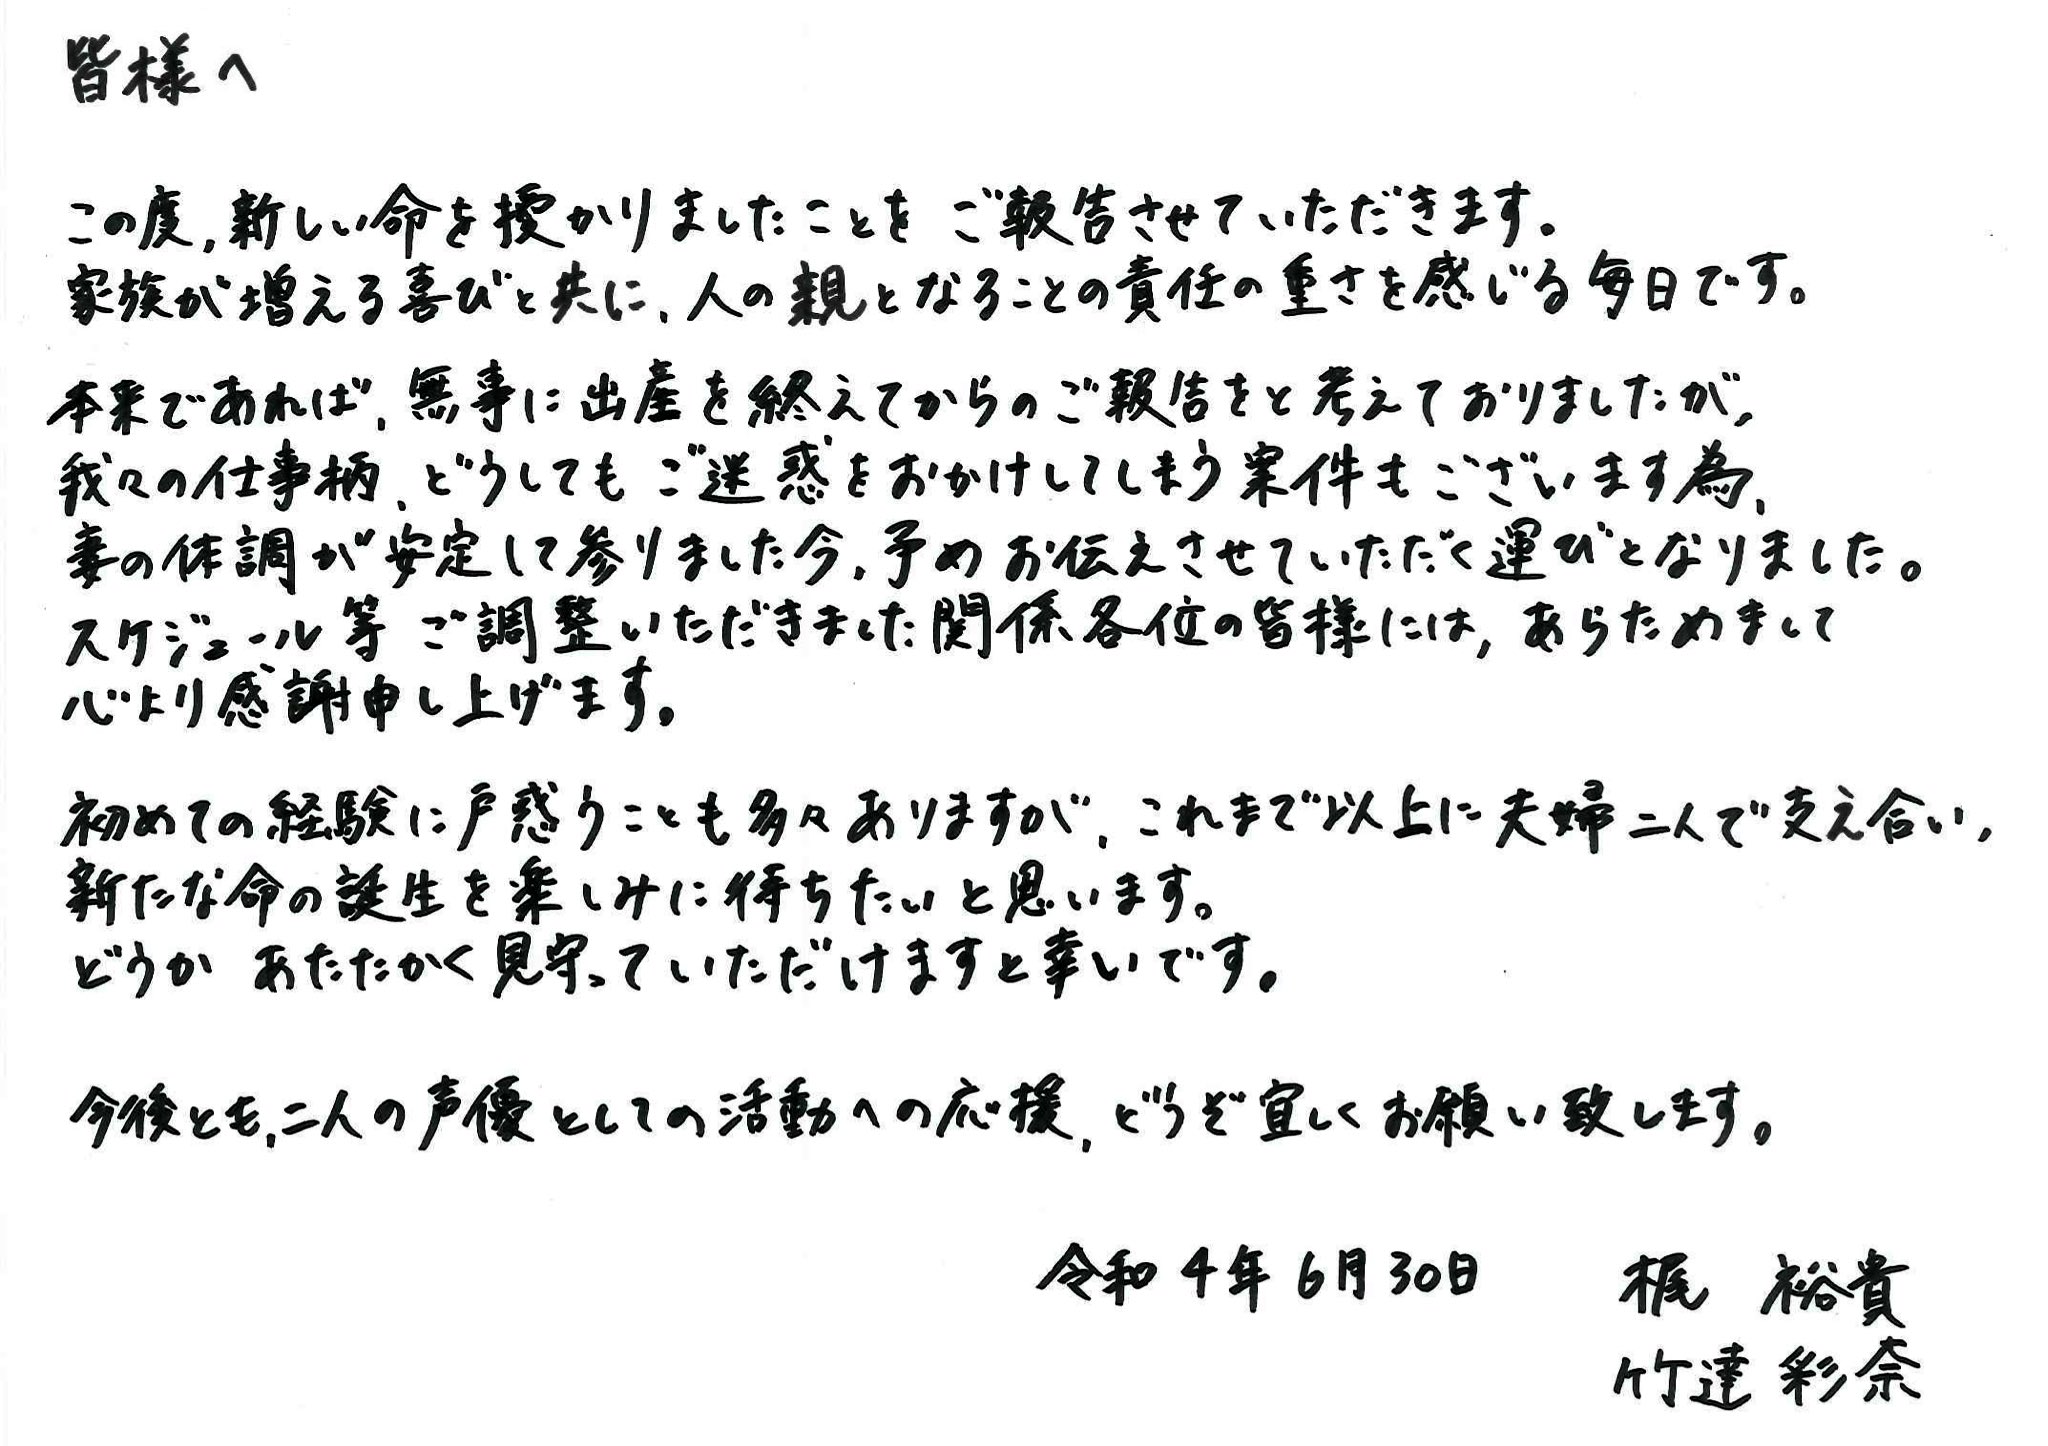 皆様へ
この度、新しい命を授かりましたことを ご報告させていただきます。
家族が増える喜びと共に、人の親となることの責任の重さを感じる毎日です。
本来であれば、無事に出産を終えてからのご報告をと考えておりましたが、
我々の仕事柄、どうしても ご迷惑をおかけしてしまう案件もございます為、
妻の体調が安定して参りました今、予め お伝えさせていただく運びとなりました。
スケジュール等 ご調整いただきました関係各位の皆様には、あらためまして
心より感謝申し上げます。
初めての経験に戸惑うことも多々ありますが、これまで以上に夫婦二人で支え合い、
新たな命の誕生を楽しみに待ちたいと思います。
どうか あたたかく見守っていただけますと幸いです。
今後とも、二人の声優としての活動への応援、どうぞ宜しくお願い致します。
令和4年6月30日 梶 裕貴
竹達 彩奈